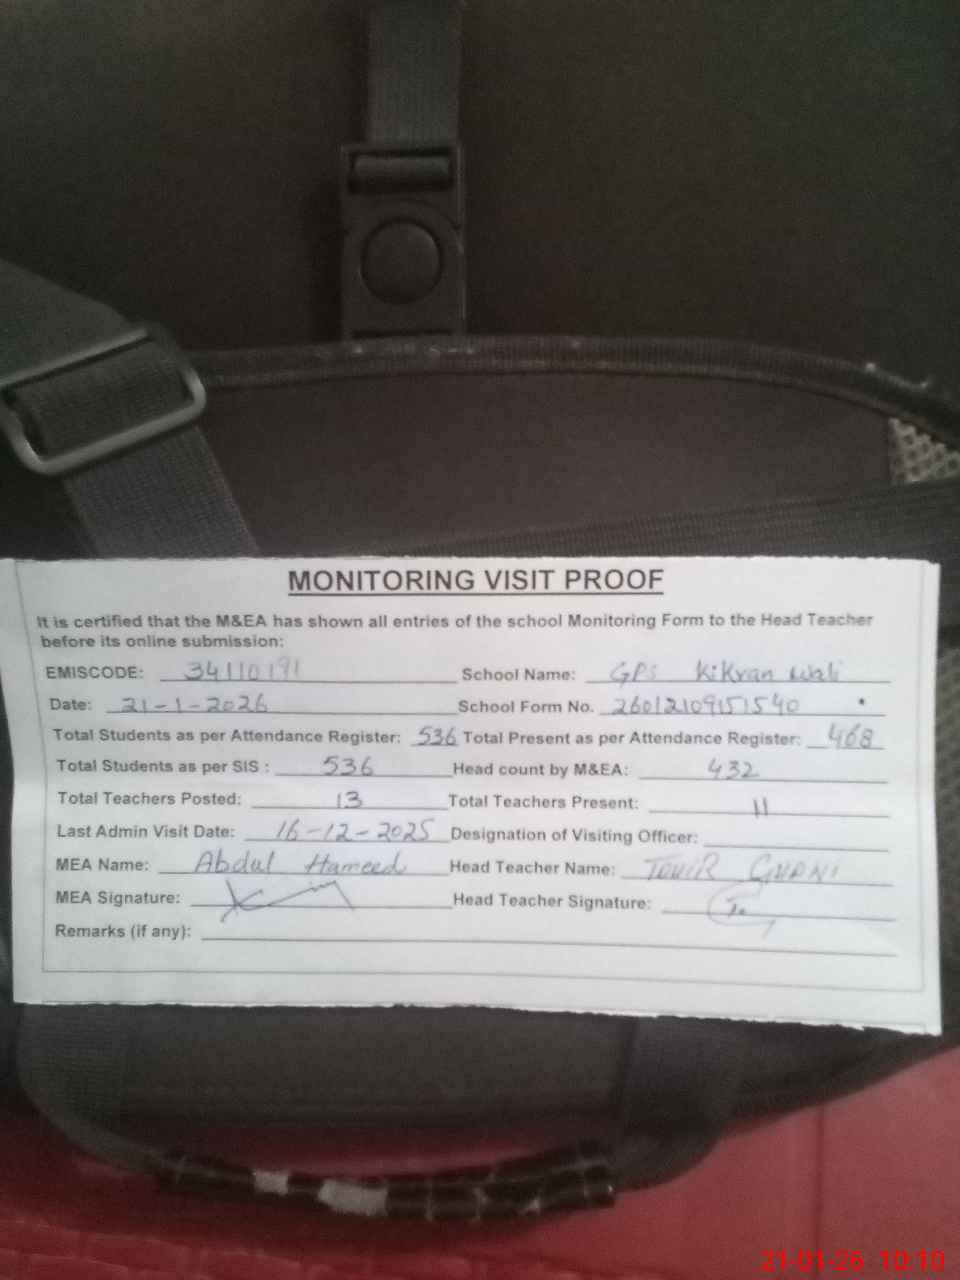 MONITORING VISIT PROOF
It is certified that the M&EA has shown all entries of the school Monitoring Form to the Head Teacher
before its online submission:
EMISCODE: 34110191 School Name: GPS Kikran wali
Date: 21-1-2026 School Form No. 26012109151540
Total Students as per Attendance Register: 536 Total Present as per Attendance Register: 468
Total Students as per SIS : 536 Head count by M&EA: 432
Total Teachers Posted: 13 Total Teachers Present: 11
Last Admin Visit Date: 16-12-2025 Designation of Visiting Officer:
MEA Name: Abdul Hameed Head Teacher Name:
MEA Signature: Head Teacher Signature:
Remarks (if any):
21-01-26 10:10